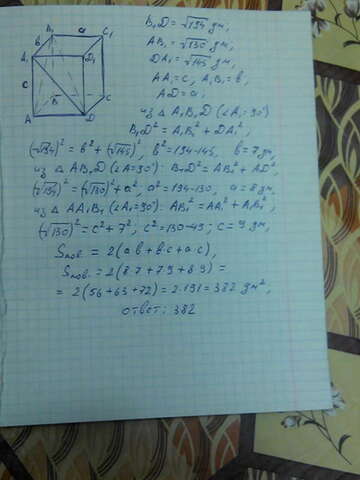 B₁D = √194 дм,
AB₁ = √130 дм,
DA₁ = √145 дм,
AA₁ = c, A₁B₁ = b,
AD = a.
из △ A₁B₁D (∠A₁=90°)
B₁D² = A₁B₁² + DA₁²,
(√194)² = b² + (√145)², b² = 194-145, b = 7 дм,
из △ AB₁D (∠A=90°): B₁D² = AB₁² + AD²,
(√194)² = (√130)² + a², a² = 194-130, a = 8 дм,
из △ AA₁B₁ (∠A₁=90°): AB₁² = AA₁² + A₁B₁²,
(√130)² = c² + 7², c² = 130-49; c = 9 дм,
Sпов. = 2(ab + bc + ac),
Sпов. = 2(8·7 + 7·9 + 8·9) =
= 2(56+63+72) = 2·191 = 382 дм²,
ответ: 382
B₁ a C₁
b
A₁ D₁
c
B C
A D